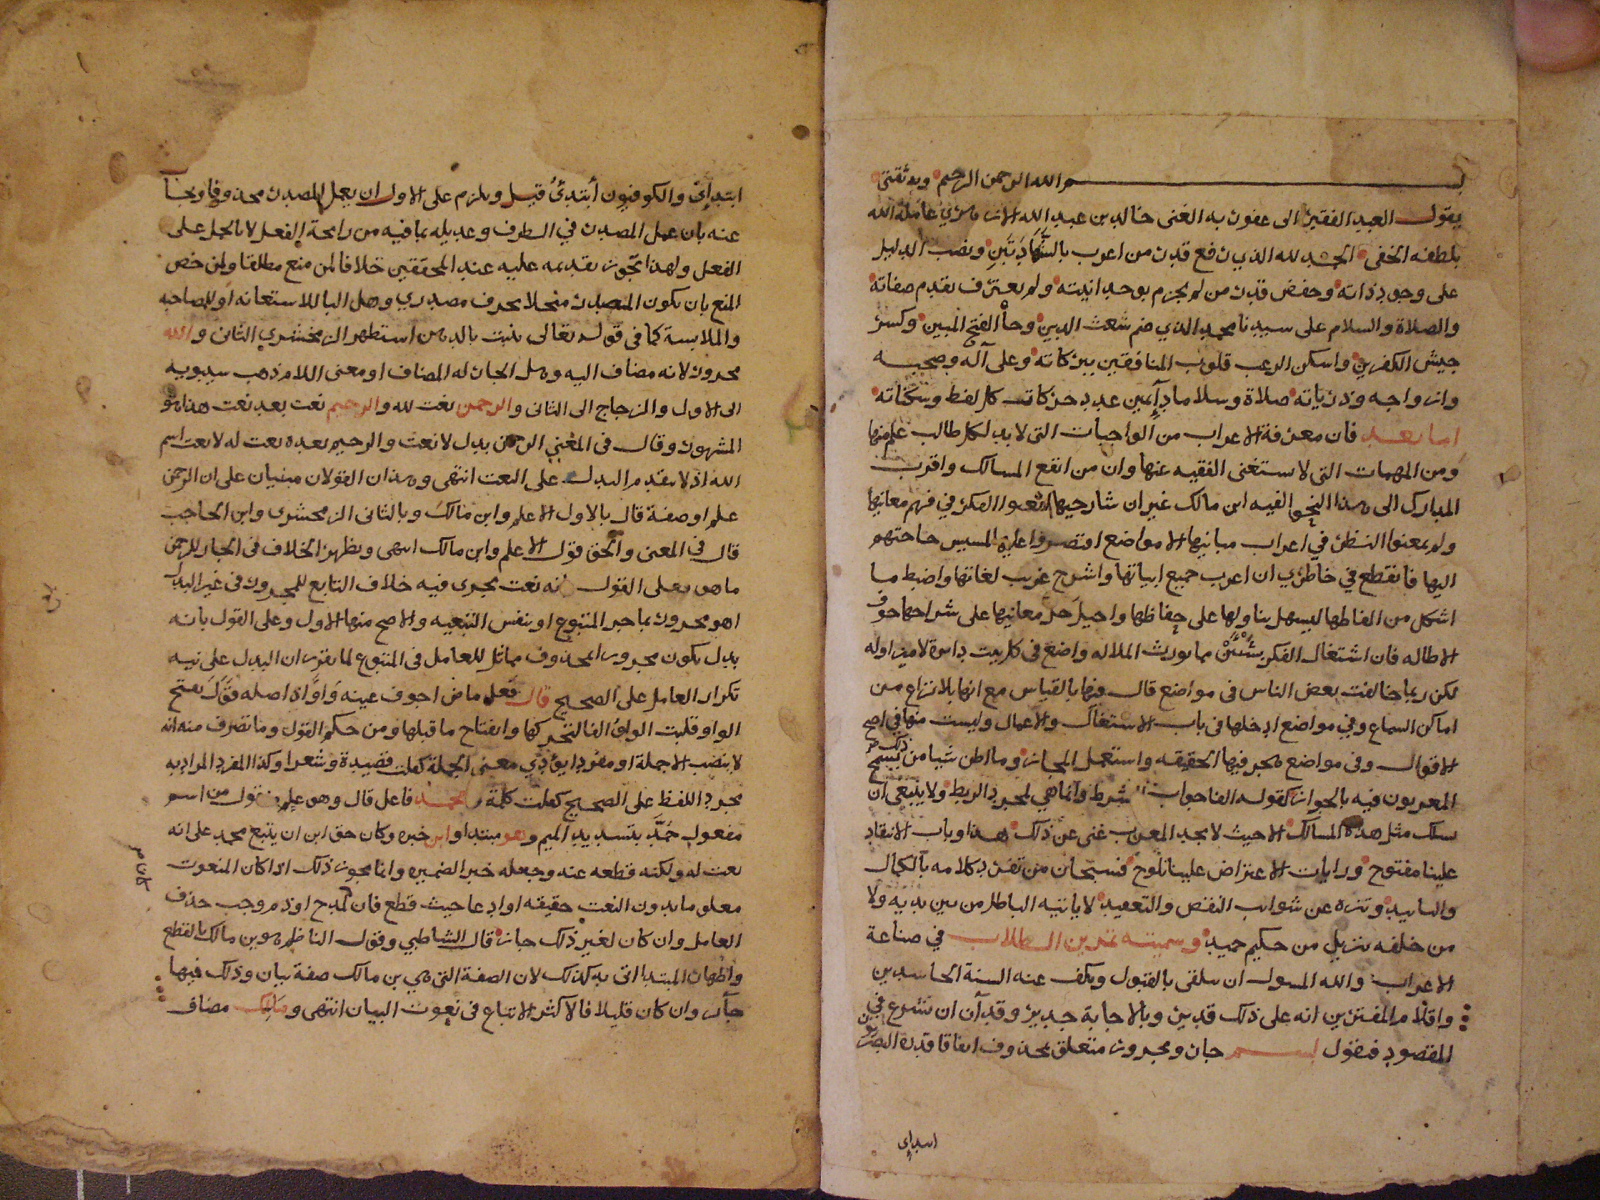 بسم الله الرحمن الرحيم وبه ثقتي
يقول العبد الفقير الى عفو ربه الغنى خالد بن عبد الله الازهري عامله الله
بلطفه الخفى الحمد لله الذي رفع قدر من اعرب بالشهادتين ونصب الدليل
على وجود ذاته وخفض قدر من لم يجزم بوحدانيته ولم يعترف بقدم صفاته
والصلاة والسلام على سيدنا محمد الذي ضم شعث الدين وجا بالفتح المبين وكسر
جيش الكفرين واسكن الرعب قلوب المنافقين ببركاته وعلى آله وصحبه
وازواجه وذرياته صلاة وسلاما دآيمين عدد حركات كل لفظ وسكناته
اما بعد فان معرفة الاعراب من الواجبات التى لا بد لكل طالب علم منها
ومن المهمات التى لا يستغنى الفقيه عنها وان من انفع المسالك واقرب
المدارك الى هذا النحو الفيه ابن مالك غير ان شارحيها الفكر في فهم معانيها
ولم يمعنوا النظر في اعراب مبانيها الا مواضع اقتصروا عليها لمسيس حاجتهم
اليها فانقطع في خاطري ان اعرب جميع ابياتها واشرح غريب لغاتها واضبط ما
اشكل من الفاظها ليسهل تناولها على حفاظها واحيل حل معانيها على شراحها خوف
الاطاله فان اشتغال الفكر بشيئين مما يورث الملاله واضع في كل بيت
لكن ربما خالفت بعض الناس فى مواضع قال فيها بالقياس مع انها بلا نزاع من
اماكن السماع وفي مواضع ادخلها فى باب الاشتغال والاعمال وليست منها في اصح
الاقوال وفى مواضع هجر فيها الحقيقه واستعمل المجاز وما اظن شيا من ذلك
المعربون فيه بالجواز كقوله الفا جواب الشرط وانما هي لمجرد الربط ولا ينبغي ان
يسلك مثل هذه المسالك الا حيث لا يجد المعرب غنى عن ذلك هذا وباب الانتقاد
علينا مفتوح ورايات الاعتراض علينا تلوح فسبحان من تفرد كلامه بالكمال
والتاييد وتنزه عن شوائب النقص والتعقيد لا ياتيه الباطل من بين يديه ولا
من خلفه تنزيل من حكيم حميد وسميته تمرين الطلاب في صناعة
الاعراب والله المسول ان يتلقى بالقبول ويكف عنه السنة الحاسدين
واقلام المفترين انه على ذلك قدير وبالاجابة جدير وقد آن ان نشرع في
المقصود فنقول بسم جار ومجرور متعلق بمحذوف اتفاقا قدره البصريون
ابتدائي
ابتدائي والكوفيون أبتدئ قبل ويلزم على الاول ان يعمل المصدر محذوفا ويجاب
عنه بان عمل المصدر في الظرف وعديله بما فيه من رايحة الفعل لا بالحمل على
الفعل ولهذا تجوز تقديمه عليه عند المحققين خلافا لمن منع مطلقا ولمن خص
المنع بان يكون المصدر منحلا بحرف مصدري وهل البا للاستعانه او للمصاحبه
والملابسة كما فى قوله تعالى تنبت بالدهن استظهر الزمخشري الثانى والله
مجرور لانه مضاف اليه وهل الجار له المضاف او معنى اللام ذهب سيبويه
الى الاول والزجاج الى الثانى والرحمن نعت لله والرحيم نعت بعد نعت هذا هو
المشهور وقال فى المغنى الرحمن بدل لا نعت والرحيم بعده نعت له لا نعت اسم
الله اذ لا يتقدم البدل على النعت انتهى وهذان القولان مبنيان على ان الرحمن
علم او صفة قال بالاول الاعلم وابن مالك وبالثانى الزمخشرى وابن الحاجب
قال في المغنى والحق قول الاعلم وابن مالك انتهى ويظهر الخلاف فى الجار للرحمن
ما هو فعلى القول انه نعت يجرى فيه خلاف التابع للمجرور فى غير البدل
اهو مجرور بما جر المتبوع او بنفس التبعيه والاصح منها الاول وعلى القول بانه
بدل يكون مجرورا بمحذوف مماثل للعامل فى المتبوع لما تقرر ان البدل على نيه
تكرار العامل على الصحيح قال فعل ماض اجوف عينه واو اذ اصله قول بفتح
الواو قلبت الواو الفا لتحركها وانفتاح ما قبلها ومن حكم القول وما تصرف منه انه
لا ينصب الا جملة او مفردا يؤدي معنى الجملة كقلت قصيدة وشعرا وكذا المفرد المراد به
مجرد اللفظ على الصحيح كقلت كلمة ومحمد فاعل قال وهو علم منقول من اسم
مفعول حمد بتشديد الميم وهو مبتدا وابن خبره وكان حق ابن ان يتبع محمد على انه
نعت له ولكنه قطعه عنه وجعله خبر الضميره وانما يجوز ذلك اذا كان المنعوت
معلوما بدون النعت حقيقه او ادعا حيث قطع فان لمدح او ذم وجب حذف
العامل وان كان لغير ذلك جاز قال الشاطبي وقول الناظم هو بن مالك بالقطع
واظهار المبتدا اتى به كذلك لان الصفة التى هي بن مالك صفة بيان وذلك فيها
جآيز وان كان قليلا فالاكثر الاتباع فى نعوت البيان انتهى ومالك مضاف